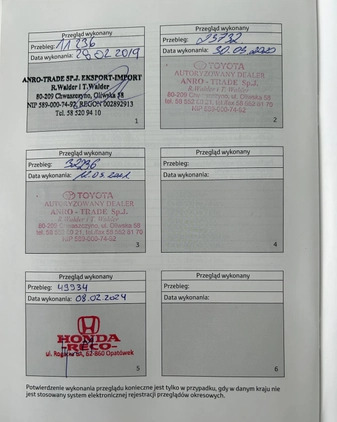 Przegląd wykonany
Przebieg: 11 236
Data wykonania: 28.02.2019
ANRO-TRADE SP.J. EKSPORT-IMPORT
R.Walder i T.Walder
80-209 Chwaszczyno, Oliwska 58
NIP 589-000-74-92, REGON 002892913
Tel. 58 520 94 10
1
Przegląd wykonany
Przebieg: 23732
Data wykonania: 30.03.2020
TOYOTA
AUTORYZOWANY DEALER
ANRO - TRADE Sp.J.
R.Walder i T. Walder
80-209 Chwaszczyno, ul. Oliwska 58
tel. 58 552 53 21, tel./fax 58 552 61 70
NIP 589-000-74-92
2
Przegląd wykonany
Przebieg: 32296
Data wykonania: 11.03.2021
TOYOTA
AUTORYZOWANY DEALER
ANRO - TRADE Sp.J.
R.Walder i T. Walder
80-209 Chwaszczyno, ul. Oliwska 58
tel. 58 552 53 21, tel./fax 58 552 61 70
NIP 589-000-74-92
3
Przegląd wykonany
Przebieg:
Data wykonania:
4
Przegląd wykonany
Przebieg: 49934
Data wykonania: 08.02.2024
HONDA
RECO
62-860 Opatówek
5
Przegląd wykonany
Przebieg:
Data wykonania:
6
Potwierdzenie wykonania przeglądu konieczne jest tylko w przypadku, gdy w danym kraju nie
jest stosowany system elektronicznej rejestracji przeglądów okresowych.